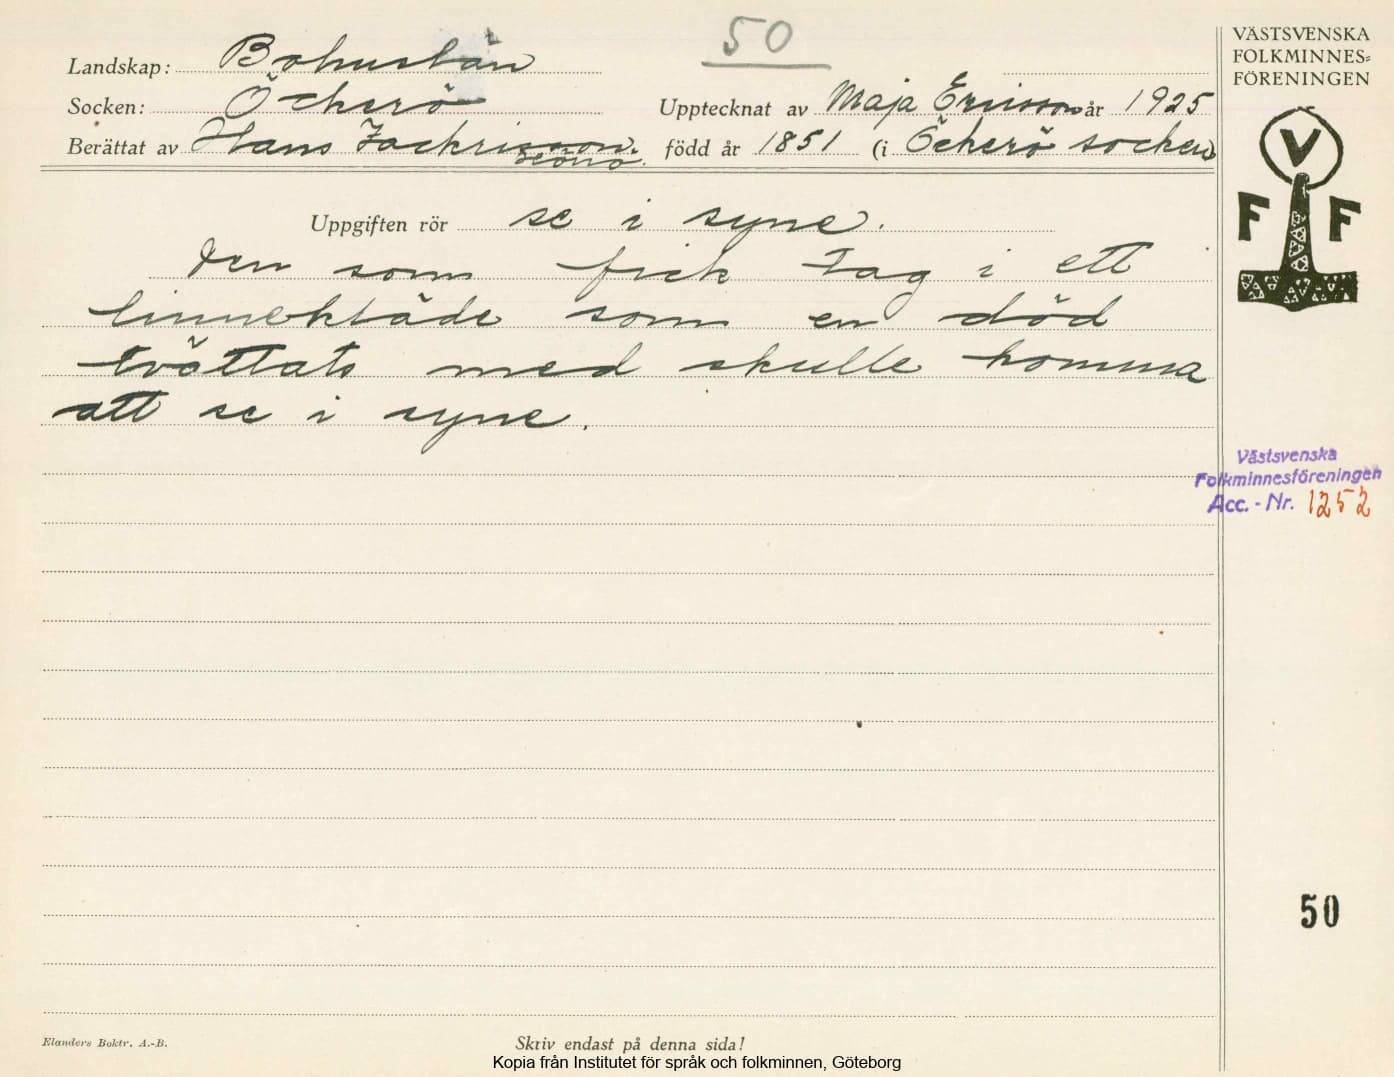 50
Landskap: Bohuslän
Socken: Öckerö
Upptecknat av Maja Ericsson år 1925
Berättat av Hans Zackrisson.
född år 1851 (i Öckerö socken
Uppgiften rör se i syne.
Den som fick tag i ett
linnekläde som en död
tvättats med skulle komma
att se i syne.
VÄSTSVENSKA
FOLKMINNES=
FÖRENINGEN
V
F F
Västsvenska
Folkminnesföreningen
Acc. - Nr. 1252
50
Elanders Boktr. A.-B.
Skriv endast på denna sida!
Kopia från Institutet för språk och folkminnen, Göteborg